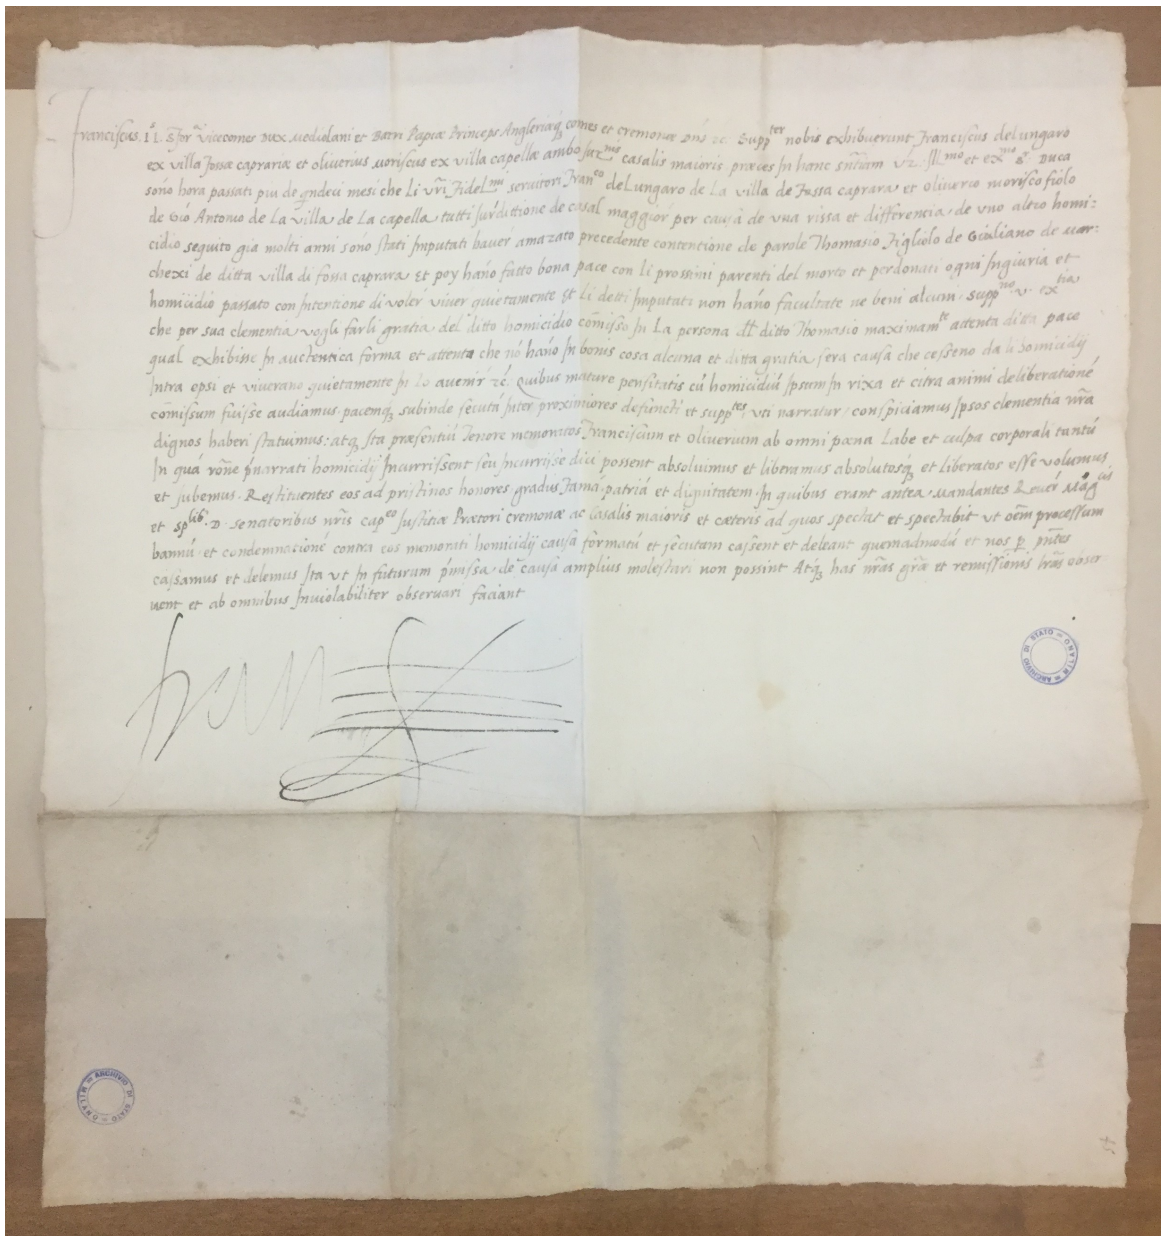 Franciscus II Sfor vicecomes Dux Mediolani et Barri Papiæ Princeps Angleriæq comes et cremonæ Dns zc. Suppter nobis exhibuerunt Franciscus delungaro
ex villa fossæ caprariæ et oliverius moriscus ex villa capellæ ambo casalis maioris præces in hanc sntiam vz. Illmo et exmo Sr. Duca
sono hora passati piu de qndeci mesi che Li vri fidelmi servitori Franco deLungaro de La villa de fossa caprara et oliverio morisco fiolo
de Gio Antonio de La villa de La capella tutti jurdittione de casal maggior per causa de vna rissa et differencia de vno altro homi:
cidio seguito gia molti anni sono stati Imputati haver amazato precedente contentione de parole Thomasio figliolo de Giuliano de mar:
chexi de ditta villa di fossa caprara et poy hano fatto bona pace con li prossimi parenti del morto et perdonati ogni Ingiuria et
homicidio passato con Intentione di voler viver quietamente et Li detti Imputati non hano facultate ne beni alcuni. suppno v. extia
che per sua clementia vogli farli gratia del ditto homicidio comisso in La persona dl ditto Thomasio maximamte attenta ditta pace
qual exhibisse in auctentica forma et attento che no hano In bonis cosa alcuna et ditta gratia sera causa che cesseno da li homicidij
Intra epsi et viverano quietamente In Lo avenir zc. Quibus maturo pensitatis cu homicidiu Ipsum In rixa et citra animi deliberatione
comissum fuisse audiamus pacemq subinde secuta Inter proximiores defuncti et supptes, vti narratur, conspiciamus Ipsos clementia nra
dignos haberi statuimus: atq Ita præsentiu tenore memoratos Franciscum et Oliverium ab omni pæna Labe et culpa corporali tantu
In qua rone pnarrati homicidij Incurrissent seu Incurrisse dici possent absoluimus et liberamus absolutosq et liberatos esse volumus
et jubemus. Restituentes eos ad pristinos honores gradus fama patria et dignitatem In quibus erant antea. Mandantes Rever Magcis
et splib. D. senatoribus nris capeo Justitiæ Prætori cremonæ ac Casalis maioris et cæteris ad quos spectat et spectabit vt oem processum
bannu et condemnacione contra eos memorati homicidij causa formatu et secutam cassent et deleant quemadmodu et nos p pntes
cassamus et delemus Ita vt in futurum pmissa de causa amplius molestari non possint Atq has nras græ et remissionis lras obser
vent et ab omnibus Inviolabiliter observari faciant
ARCHIVIO DI STATO = MILANO =
ARCHIVIO DI STATO = MILANO =